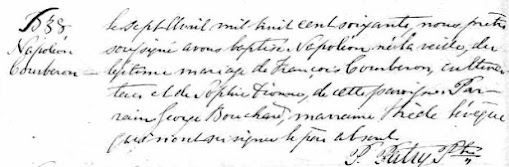 B38
Napoléon
Comberon
le sept Avril mil huit cent soixante, nous prêtre
soussigné avons baptisé Napoléon né la veille, du
légitime mariage de François Comberon, cultiva-
teur et de Sophie Dionne, de cette paroisse. Par-
rain George Bouchard, marraine Levêque
qui n'ont su signer le père absent.
Ptre